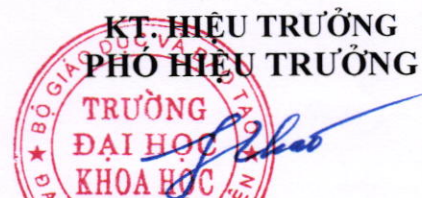 KT. HIỆU TRƯỞNG
PHÓ HIỆU TRƯỞNG
BỘ GIÁO DỤC VÀ ĐÀO TẠO
TRƯỜNG
ĐẠI HỌC
KHOA HỌC